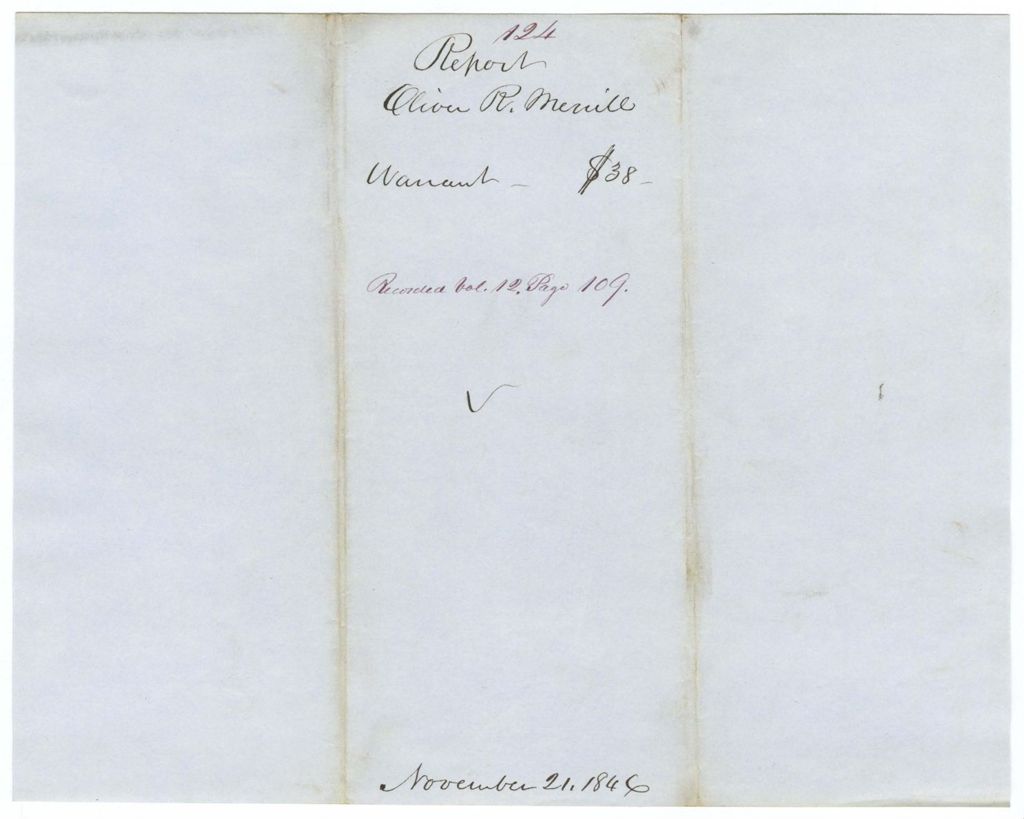 124
Report
Oliver R. Merrill
Warrant - $38-
Recorded Vol. 12. Page 109.
November 21. 1846